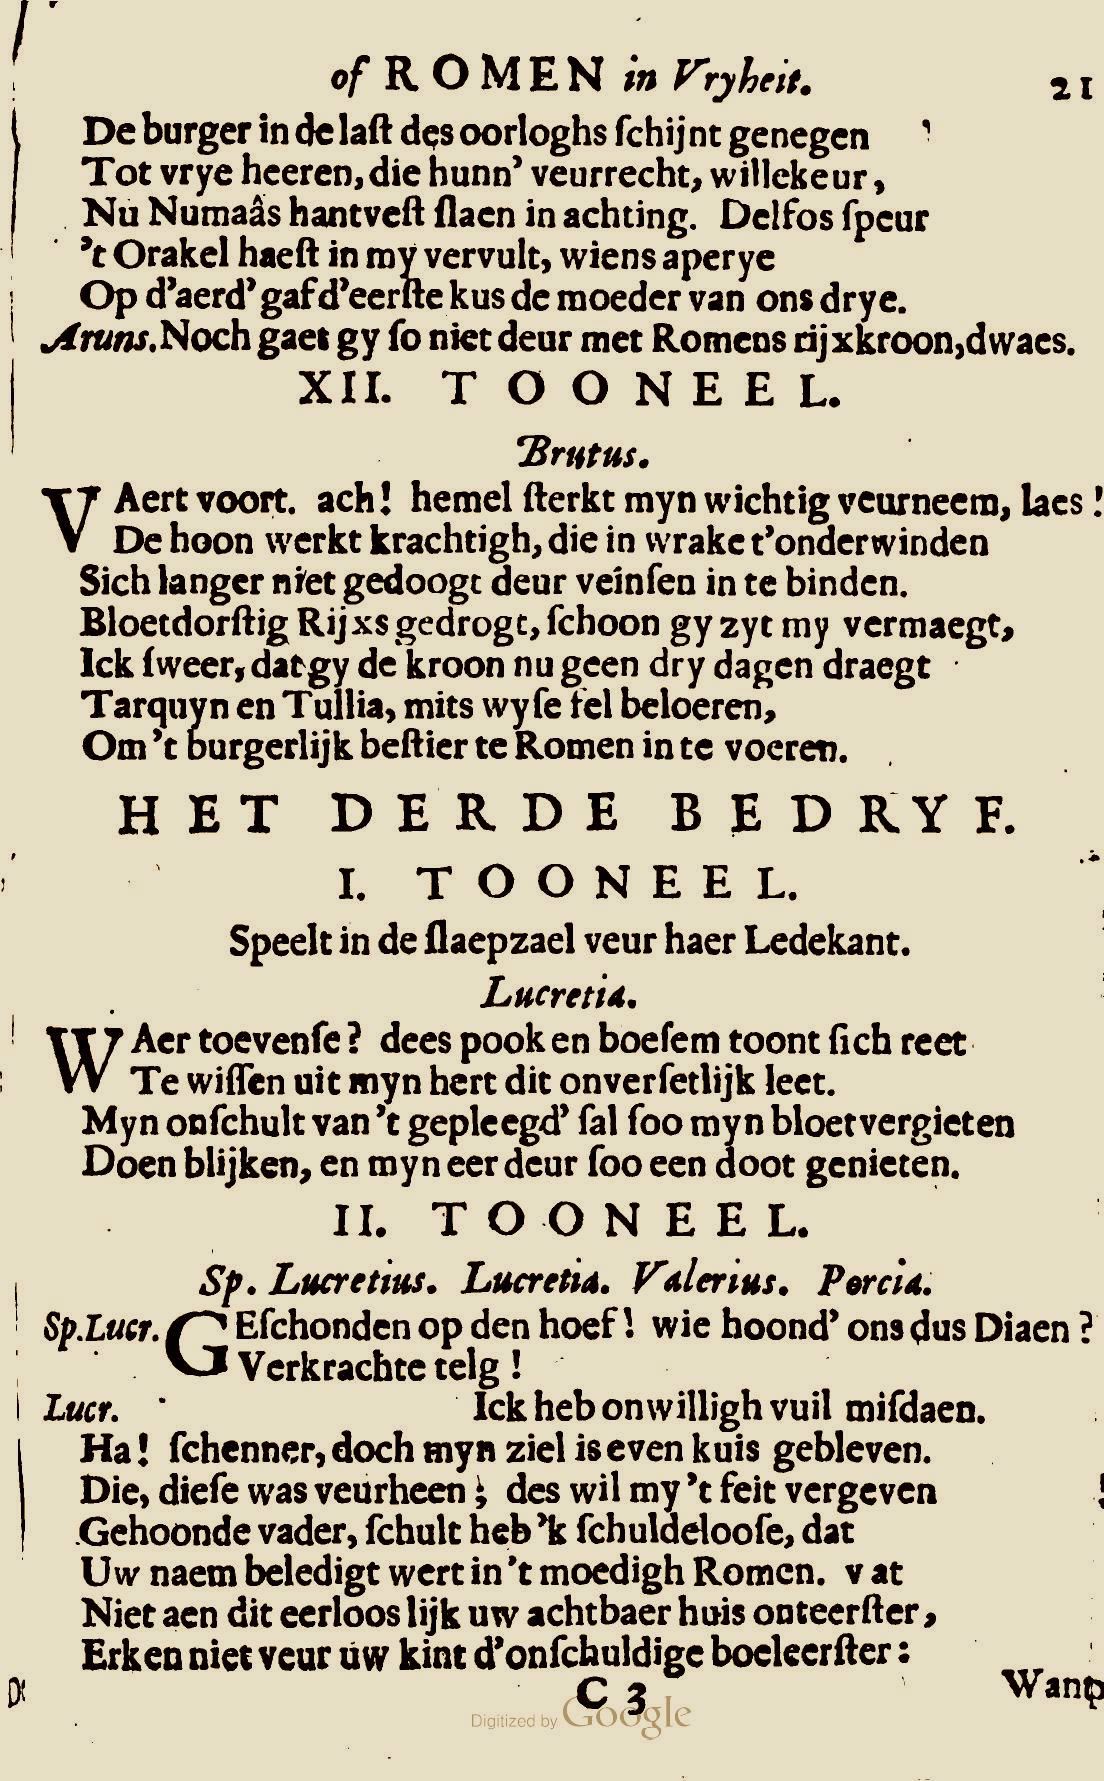 of ROMEN in Vryheit. 21
De burger in de last des oorloghs schijnt genegen
Tot vrye heeren, die hunn' veurrecht, willekeur,
Nu Numaâs hantvest slaen in achting. Delfos speur
't Orakel haest in my vervult, wiens aperye
Op d'aerd' gaf d'eerste kus de moeder van ons drye.
Aruns. Noch gaet gy so niet deur met Romens rijxkroon, dwaes.
XII. TOONEEL.
Brutus.
VAert voort. ach! hemel sterkt myn wichtig veurneem, laes!
De hoon werkt krachtigh, die in wrake t'onderwinden
Sich langer niet gedoogt deur veinsen in te binden.
Bloetdorstig Rijxs gedrogt, schoon gy zyt my vermaegt,
Ick sweer, dat gy de kroon nu geen dry dagen draegt
Tarquyn en Tullia, mits wyse fel beloeren,
Om 't burgerlijk bestier te Romen in te voeren.
HET DERDE BEDRYF.
I. TOONEEL.
Speelt in de slaepzael veur haer Ledekant.
Lucretia.
WAer toevense? dees pook en boesem toont sich reet
Te wissen uit myn hert dit onversetlijk leet.
Myn onschult van 't gepleegd' sal soo myn bloet vergieten
Doen blijken, en myn eer deur soo een doot genieten.
II. TOONEEL.
Sp. Lucretius. Lucretia. Valerius. Porcia.
Sp. Lucr. GEschonden op den hoef! wie hoond' ons dus Diaen?
Verkrachte telg!
Lucr. Ick heb onwilligh vuil misdaen.
Ha! schenner, doch myn ziel is even kuis gebleven.
Die, diese was veurheen; des wil my 't feit vergeven
Gehoonde vader, schult heb 'k schuldeloose, dat
Uw naem beledigt wert in 't moedigh Romen. vat
Niet aen dit eerloos lijk uw achtbaer huis onteerster,
Erken niet veur uw kint d'onschuldige boeleerster:
C 3 Want
Digitized by Google